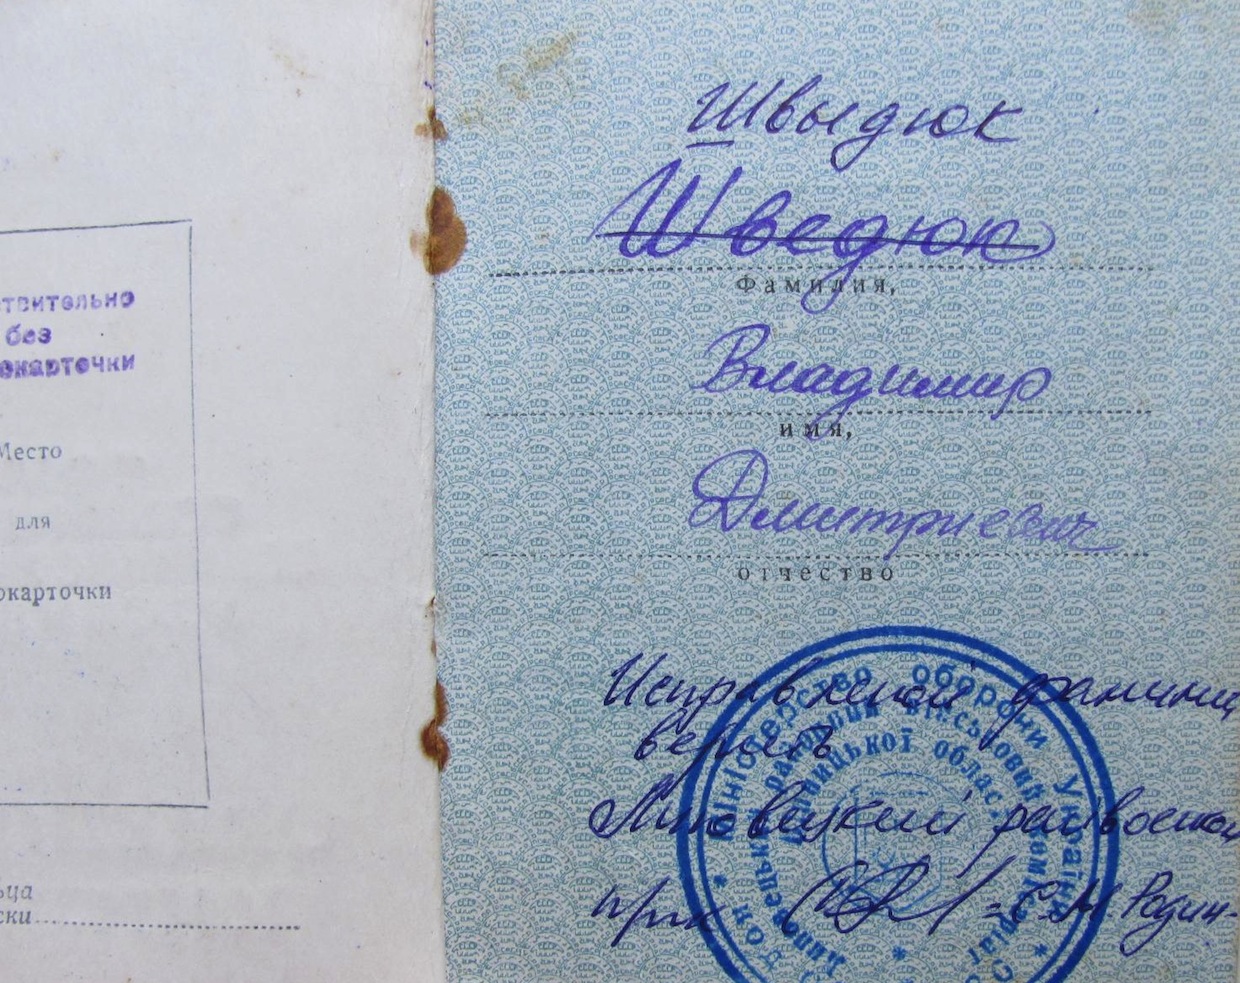 ствительно
без
окарточки
Место
для
окарточки
ьца
ски
Швыдюк
Шведюк
Фамилия,
Владимир
имя,
Дмитриевич
отчество
Исправленой фамилии
верить
райвоенком
Міністерство оборони України
районний військовий комісаріат
області